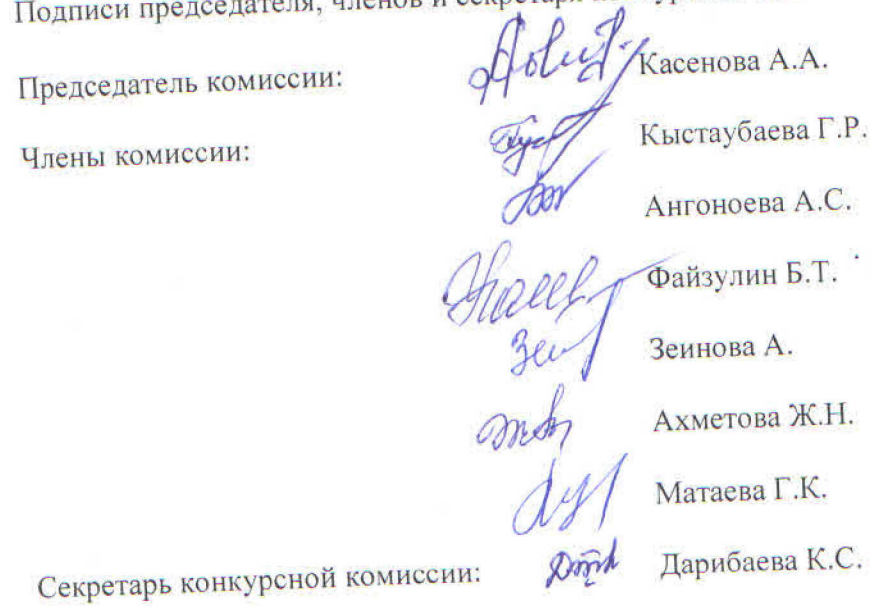 Подписи председателя, членов и секретаря
Председатель комиссии: Касенова А.А.
Члены комиссии: Кыстаубаева Г.Р.
Ангоноева А.С.
Файзулин Б.Т.
Зеинова А.
Ахметова Ж.Н.
Матаева Г.К.
Секретарь конкурсной комиссии: Дарибаева К.С.